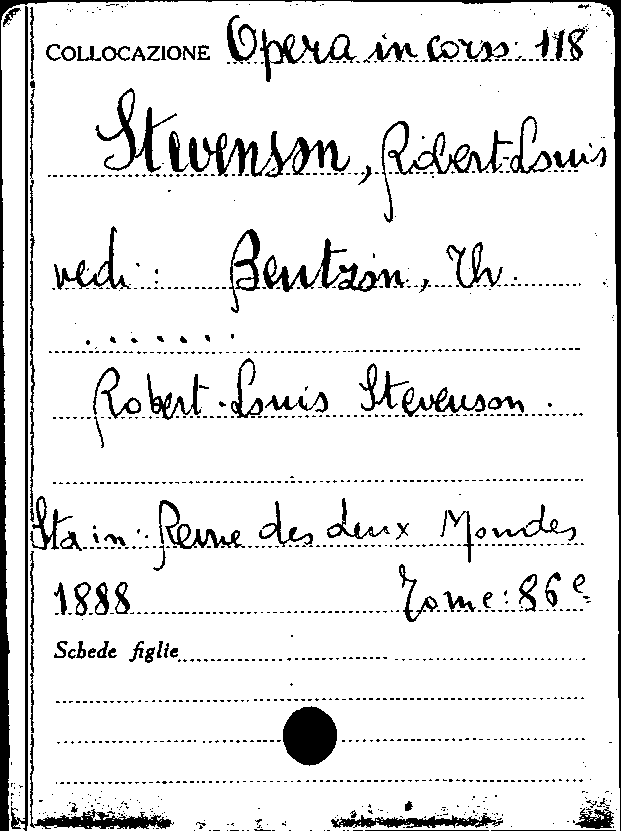 COLLOCAZIONE Opera in corso 118
Stevenson, Robert-Louis
vedi: Bentzon, Th.
.......
Robert-Louis Stevenson.
Sta in: Revue des deux Mondes
1888 Tome: 86e
Schede figlie